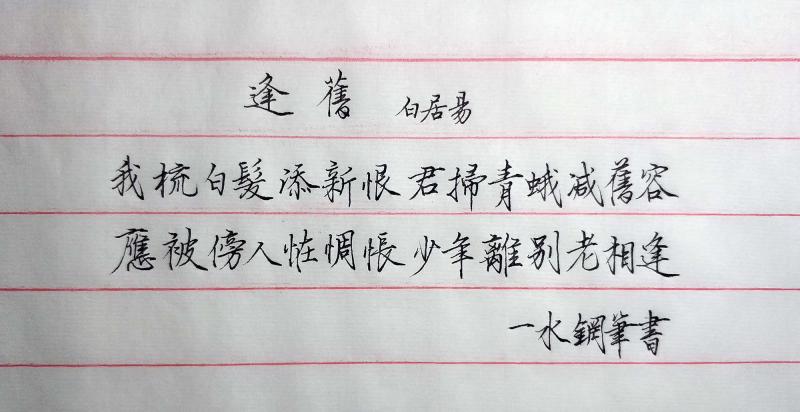 逢舊 白居易
我梳白髮添新恨君掃青蛾减舊容
應被傍人恠惆悵少年離別老相逢
一水鋼筆書